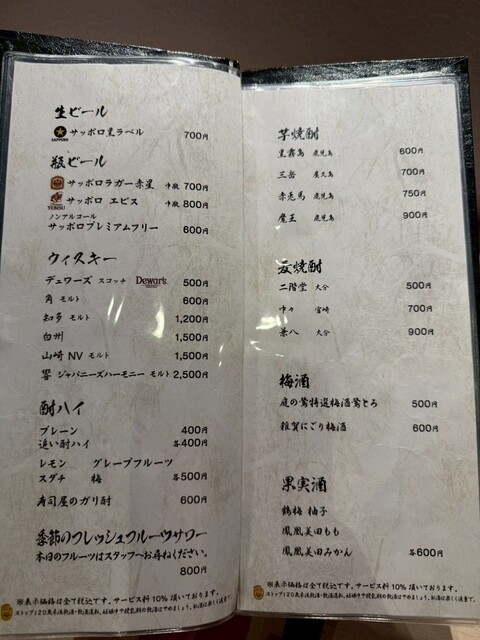 生ビール
SAPPORO サッポロ黒ラベル 700円
瓶ビール
サッポロラガー赤星 中瓶 700円
YEBISU サッポロ エビス 中瓶 800円
ノンアルコール
サッポロプレミアムフリー 600円
ウィスキー
デュワーズ スコッチ Dewar's 500円
角 モルト 600円
知多 モルト 1,200円
白州 1,500円
山崎 NV モルト 1,500円
響 ジャパニーズハーモニー モルト 2,500円
酎ハイ
プレーン 400円
追い酎ハイ 各400円
レモン グレープフルーツ
スダチ 梅 各500円
寿司屋のガリ酎 600円
季節のフレッシュフルーツサワー
本日のフルーツはスタッフへお尋ねください。
800円
※表示価格は全て税込です。サービス料10%頂いております。
ストップ!20歳未満飲酒・飲酒運転。妊娠中や授乳期の飲酒はやめましょう。お酒は楽しく適量で。
芋焼酎
黒霧島 鹿児島 600円
三岳 屋久島 700円
赤兎馬 鹿児島 750円
魔王 鹿児島 900円
麦焼酎
二階堂 大分 500円
中々 宮崎 700円
兼八 大分 900円
梅酒
庭の鶯特選梅酒鶯とろ 500円
雑賀にごり梅酒 600円
果実酒
鶴梅 柚子
鳳凰美田もも
鳳凰美田みかん 各600円
※表示価格は全て税込です。サービス料10%頂いております。
ストップ!20歳未満飲酒・飲酒運転。妊娠中や授乳期の飲酒はやめましょう。お酒は楽しく適量で。